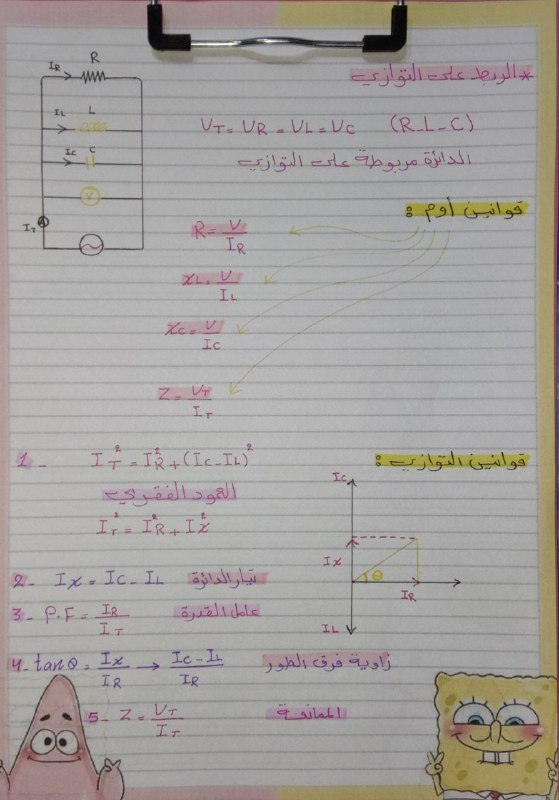 * الربط على التوازي
V_T = V_R = V_L = V_C (R_L_C)
الدائرة مربوطة على التوازي
I_R R
I_L L
I_C C
V
I_T
قوانين أوم :
R = V / I_R
X_L = V / I_L
X_C = V / I_C
Z = V_T / I_T
قوانين التوازي :
1_ I_T² = I_R² + (I_C - I_L)²
العمود الفقري
I_T² = I_R² + I_X²
2_ I_X = I_C - I_L تيار الدائرة
3_ P.F = I_R / I_T عامل القدرة
4_ tan θ = I_X / I_R → I_C - I_L / I_R زاوية فرق الطور
5_ Z = V_T / I_T الممانعة
I_C
I_X
θ
I_R
I_L